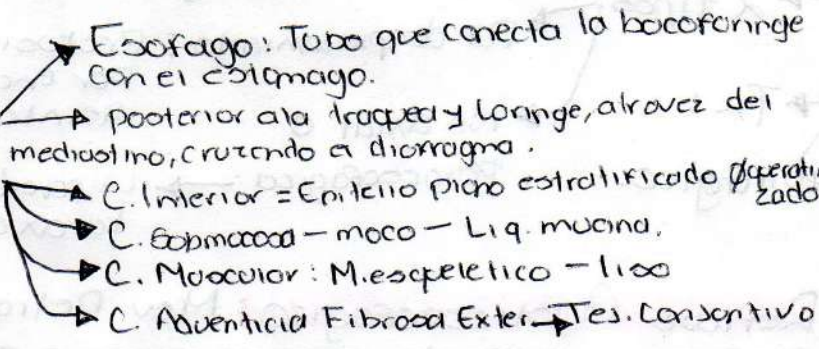 Esofago: Tubo que conecta la bocofaringe
con el estomago.
posterior ala traquea y laringe, atravez del
mediastino, cruzando el diafragma.
C. Interior = Epitelio plano estratificado Øquerati
zado
C. Submucosa - moco - Liq. mucina.
C. Muscular: M. esqueletico - liso
C. Adventicia Fibrosa Exter. → Tes. Conjontivo